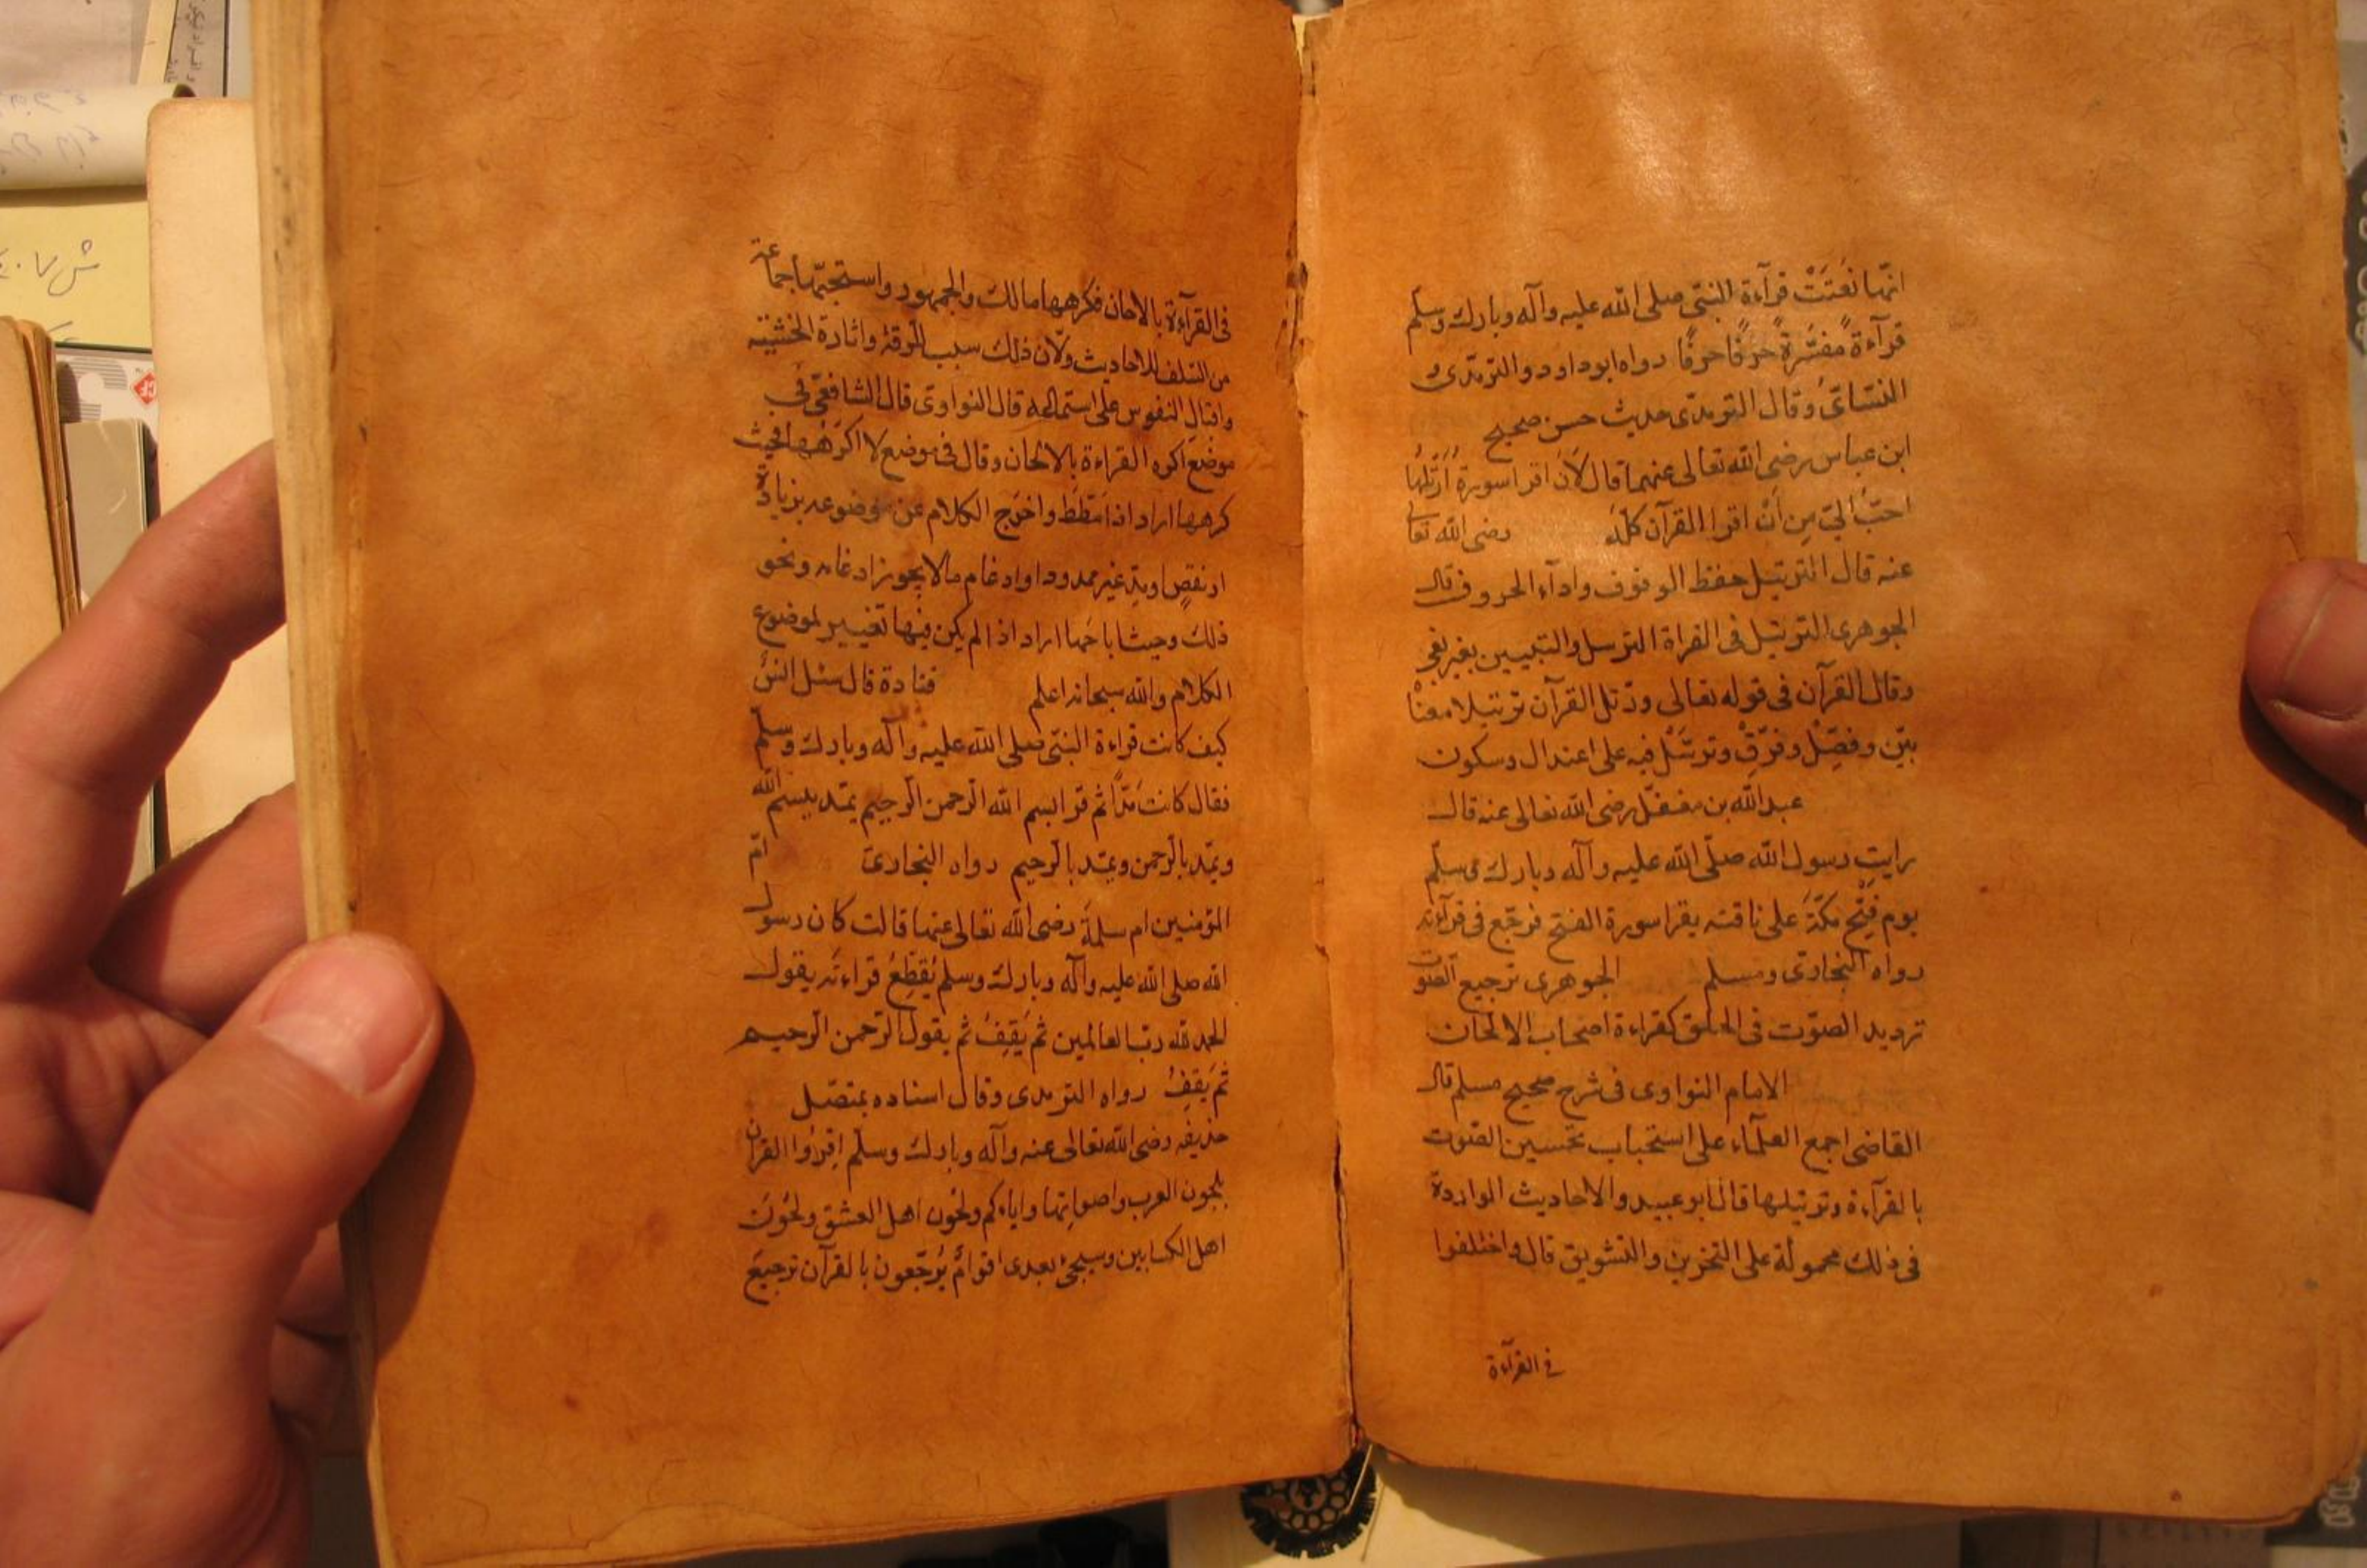 انّها نَعَتَتْ قرآءة النبّى صلى الله عليه وآله وبارك وسلّم
قرآءةً مفسّرةً حرفًا حرفًا رواه ابوداود والترمذى و
النسّاىّ وقال الترمذى حديث حسن صحيح
ابن عباس رضى الله تعالى عنهما قال لَاَنْ اقرا سورةً اُرَتّلُها
احبّ الىّ مِن اَنْ اقرا القرآن كلّه رضى الله تعالى
عنه قال الترتيل حفظ الوقوف وادآء الحروف قال
الجوهرى الترتيل فى القراة الترسل والتبيين بغير بغى
وقال القرآن فى قوله تعالى ورتل القرآن ترتيلا معناْ
بيّن وفصِّلْ وفرّقْ وترتّلْ فيه على اعتدال وسكون
عبد الله بن مغفّل رضى الله تعالى عنه قال
رايت رسول الله صلّى الله عليه وآله وبارك وسلّم
يوم فَتْحِ مكّةَ على ناقته يقرا سورة الفتح فرجّع فى قرآءته
رواه البخارىّ ومسلم الجوهرى ترجيع الصّوت
ترديد الصّوت فى الحلق كقراءة اصحاب الالحان
الامام النواوى فى شرح صحيح مسلم قال
القاضى اجمع العلمآء على استحباب تحسين الصّوت
بالقرآءة وترتيلها قال ابو عبيد والاحاديث الواردة
فى ذلك محمولة على التحزين والتشويق قال واختلفوا
فى القرآءة
فى القرآءة بالالحان فكرهها مالك والجمهور واستحبّها جماعة
من السّلف للاحاديث ولانّ ذلك سبب للرّقة واثارة الخشية
واقبال النفوس على استماعه قال النواوى قال الشافعىّ فى
موضع اكره القراءة بالالحان وقال فى موضع لا اكرهها فحيث
كرهها اراد اذا مَطّطَ واخرَج الكلام عن موضوعه بزيادة
او نقصٍ او مدِّ غير ممدود او ادغام مالا يجوز ادغامه ونحو
ذلك وحيث اباحَها اراد اذا لم يكن فيها تغيير لموضوع
الكلام والله سبحانه اعلم قتادة قال سئل انسٌ
كيف كانت قراءة النبّى صلى الله عليه وآله وبارك وسلّم
فقال كانت مدًّا ثم قرا بسم الله الرّحمن الرّحيم يمدّ ببسم الله
ويمّد بالرّحمن ويمّد بالرّحيم رواه البخارىّ امّ
المؤمنين ام سلمةَ رضى الله تعالى عنها قالت كان رسول
الله صلى الله عليه وآله وبارك وسلم يُقَطِّعُ قراءتَه يقول
الحمد لله ربّ العالمين ثم يَقِفُ ثم يقول الرّحمن الرّحيم
ثم يَقِفُ رواه الترمذى وقال اسناده بمتصّل
حذيفه رضى الله تعالى عنه وآله وبارك وسلّم اِقرَاُوا القرآن
بلحون العرب واصواتها واياكم ولحُون اهل العشق ولحُونَ
اهل الكتابين وسيجئ بعدى اقوامٌ يُرجّعون بالقرآن ترجيعَ